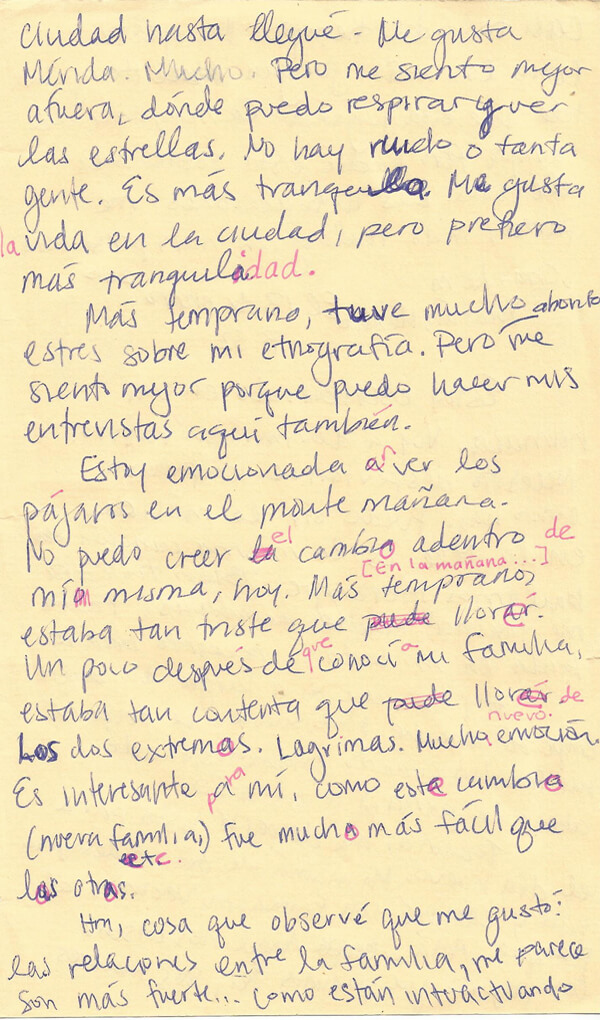 ciudad hasta llegué. Me gusta
Mérida. Mucho. Pero me siento mejor
afuera, dónde puedo respirar y ver
las estrellas. No hay ruido o tanta
gente. Es más tranquilo. Me gusta
la vida en la ciudad, pero prefiero
más tranquilidad.
Más temprano, tuve mucho
estres sobre mi etnografía. Pero me
siento mejor porque puedo hacer mis
entrevistas aquí también.
Estoy emocionada a ver los
pájaros en el monte mañana.
No puedo creer el cambio adentro de
[En la mañana...]
mí misma, hoy. Más temprano,
estaba tan triste que pude lloré.
Un poco después de que conocí a mi familia,
estaba tan contenta que pude lloré de
nuevo.
Los dos extremos. Lagrimas. Mucha emoción.
Es interesante para mí, como este cambio
(nueva familia,) fue mucho más fácil que
etc.
los otros.
Hm, cosa que observé que me gustó:
las relaciones entre la familia, me parece
son más fuerte... como están intuactuando